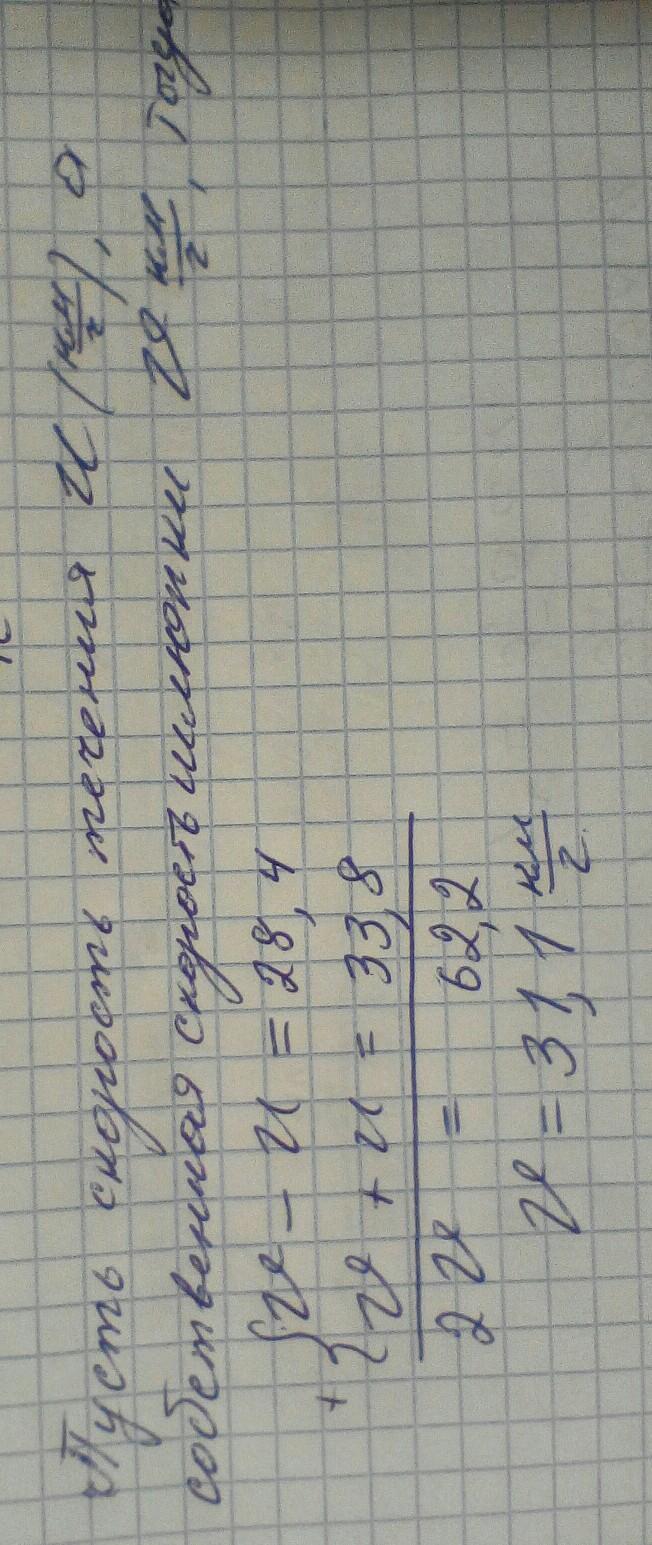 Пусть скорость течения u (км/ч), а
собственная скорость шлюпки v км/ч, тогда
{ v - u = 28,4
+ { v + u = 33,8
2v = 62,2
v = 31,1 км/ч